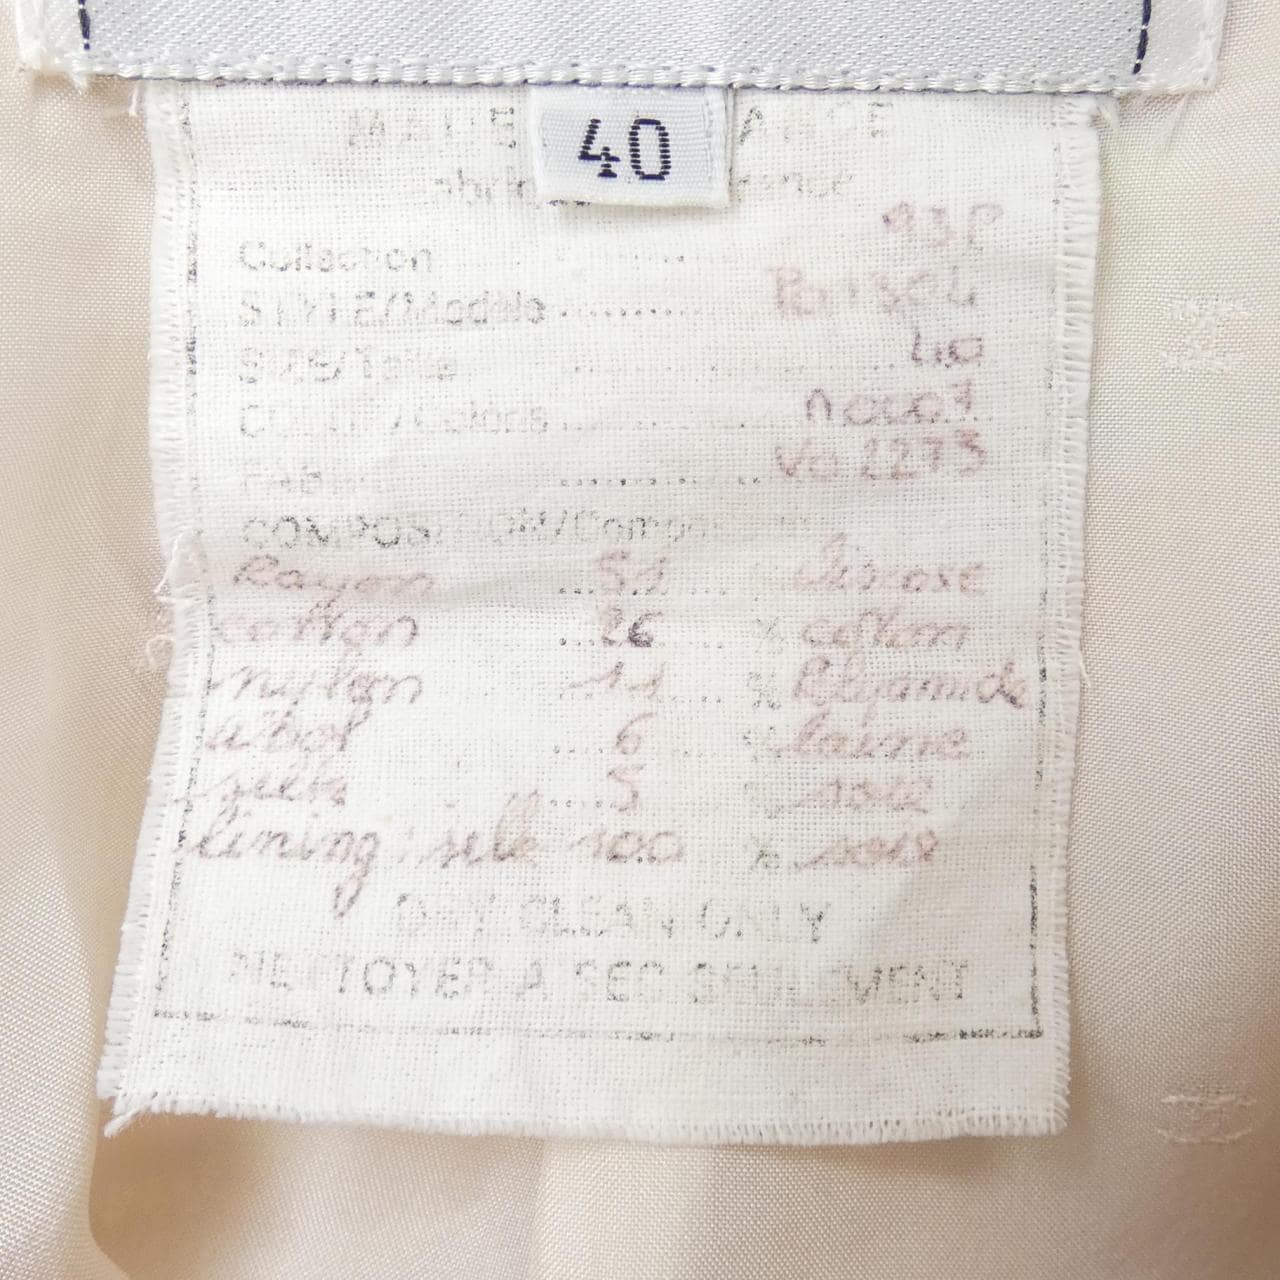 40
MADE IN FRANCE
Fabriqué en France
Collection 93P
STYLE/Modèle P01304
SIZE/Taille 40
COLOR/Coloris
FABRIC V02273
COMPOSITION/Composition
Rayon 51 % Viscose
cotton 26 % cotton
nylon 11 % Polyamide
wool 6 % laine
silk 5 % soie
lining: silk 100 % soie
DRY CLEAN ONLY
NETTOYER A SEC SEULEMENT